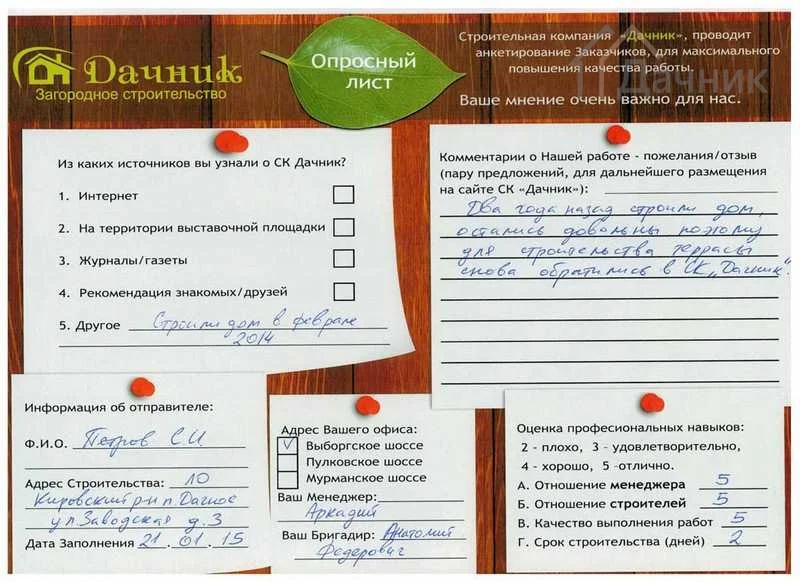 Дачник
Загородное строительство
Опросный
лист
Строительная компания «Дачник», проводит
анкетирование Заказчиков, для максимального
повышения качества работы.
Ваше мнение очень важно для нас.
Дачник
Из каких источников вы узнали о СК Дачник?
1. Интернет
2. На территории выставочной площадки
3. Журналы/газеты
4. Рекомендация знакомых/друзей
5. Другое Строили дом в феврале
2014
Комментарии о Нашей работе - пожелания/отзыв
(пару предложений, для дальнейшего размещения
на сайте СК «Дачник»):
Два года назад строили дом,
остались довольны поэтому
для строительства террасы
снова обратились в СК „Дачник".
Информация об отправителе:
Ф.И.О. Петров С И
Адрес Строительства: ЛО
Кировский р-н п. Дачное
ул. Заводская д. 3
Дата Заполнения 21.01.15
Адрес Вашего офиса:
√ Выборгское шоссе
Пулковское шоссе
Мурманское шоссе
Ваш Менеджер:
Аркадий
Ваш Бригадир: Анатолий
Федерович
Оценка профессиональных навыков:
2 - плохо, 3 - удовлетворительно,
4 - хорошо, 5 -отлично.
А. Отношение менеджера 5
Б. Отношение строителей 5
В. Качество выполнения работ 5
Г. Срок строительства (дней) 2